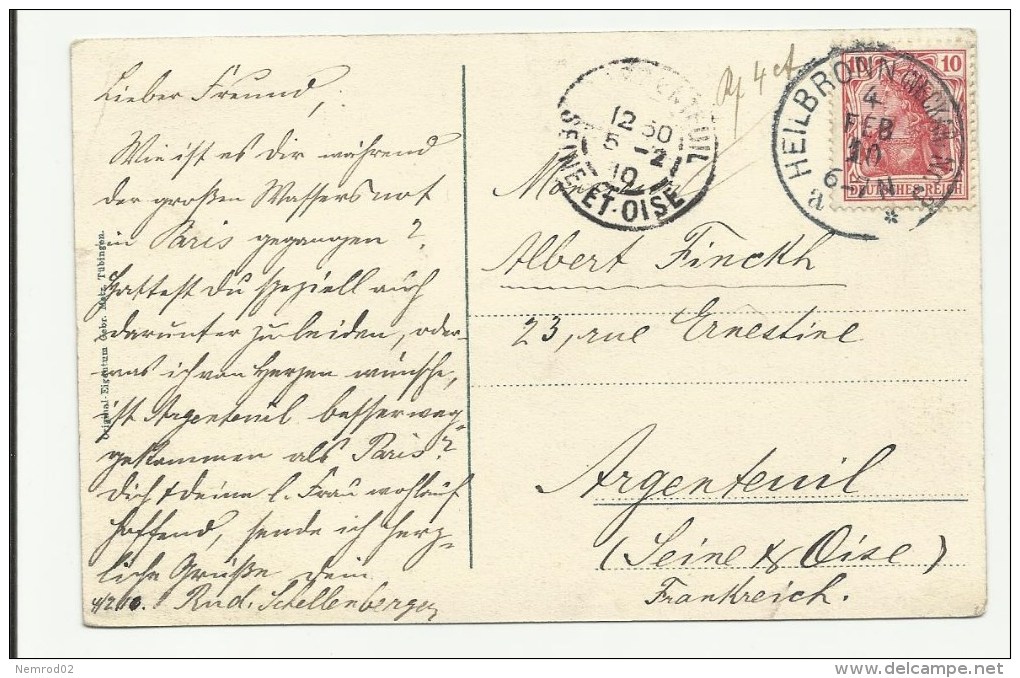 Lieber Freund,
Wie ist es dir während
der großen Wassersnot
in Paris gegangen?
Hattest Du speziell auch
darunter zu leiden, oder
was ich von Herzen wünsche,
ist Argenteuil besser weg-
gekommen als Paris?
Dich & deine l. Frau wohlauf
hoffend, sende ich herz-
liche Grüße dein
4/2 10. Rud. Schellenberger
Original-Eigentum Gebr. Metz, Tübingen.
12 30
5 - 2
10
SEINE-ET-OISE
Rf 4 ct
HEILBRONN (NECKAR)
4
FEB
10
6-7 N
a
*
10
DEUTSCHES REICH
Albert Finckh
23, rue Ernestine
Argenteuil
(Seine & Oise)
Frankreich.
Nemrod02
delcampe.net